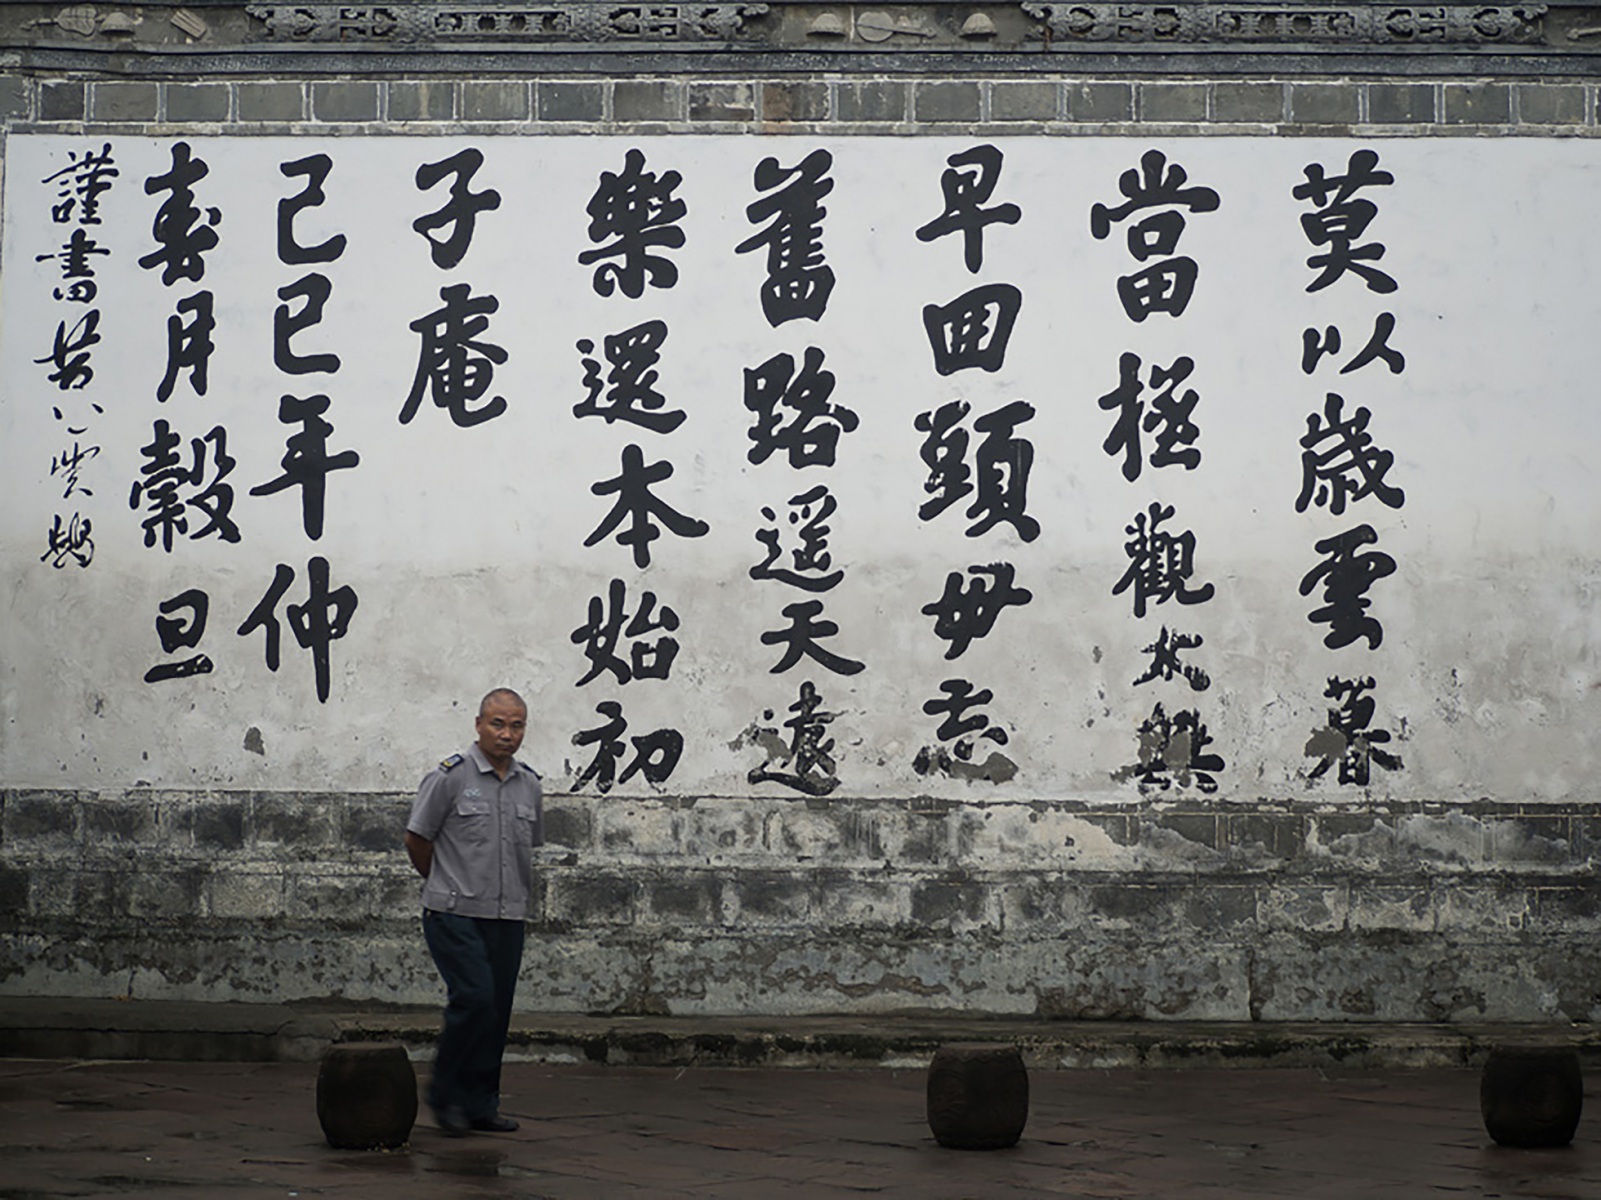 莫以歲雲暮
當極觀太無
早囬頭毋忘
舊路遥天遠
樂還本始初
子庵
己巳年仲
春月穀旦
謹書